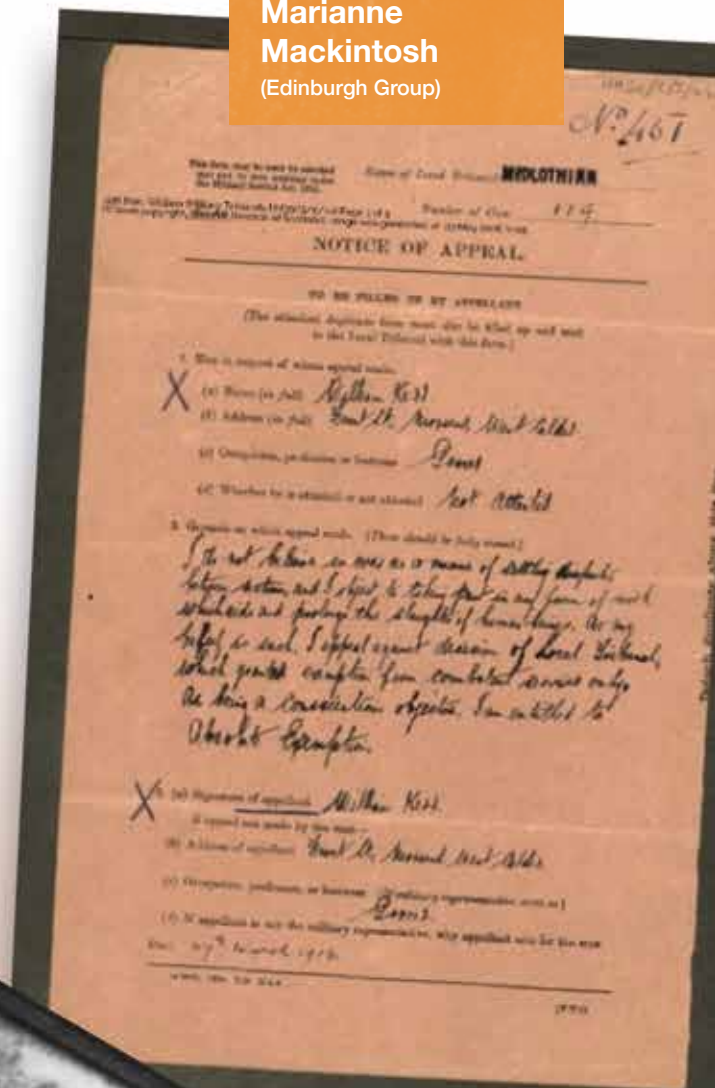 Marianne
Mackintosh
(Edinburgh Group)
No. 451
This form may be used by
Name of Local Tribunal MIDLOTHIAN
Number of Case 114
NOTICE OF APPEAL.
TO BE FILLED UP BY APPELLANT
(The attached duplicate form must also be filled up and sent
to the Local Tribunal with this form.)
1. Man in respect of whom appeal made.
X (a) Name (in full) William Kerr
(b) Address (in full) Front St, West Calder
(c) Occupation, profession or business
(d) Whether he is attested or not attested Not Attested
2. Grounds on which appeal made. (These should be fully stated.)
I do not believe in war as a means of settling disputes
between nations, and I object to taking part in any form of work
which aids and prolongs the slaughter of human beings. As my
belief is such, I appeal against decision of Local Tribunal,
which grants exemption from combatant service only.
As being a conscientious objector. I am entitled to
Absolute Exemption
X (a) Signature of appellant William Kerr
if appeal not made by the man
(b) Address of appellant Front St, West Calder
(c) Occupation, profession, or business
(d) If appellant is not the military representative, why appellant acts for the man
Date 27th March 1916